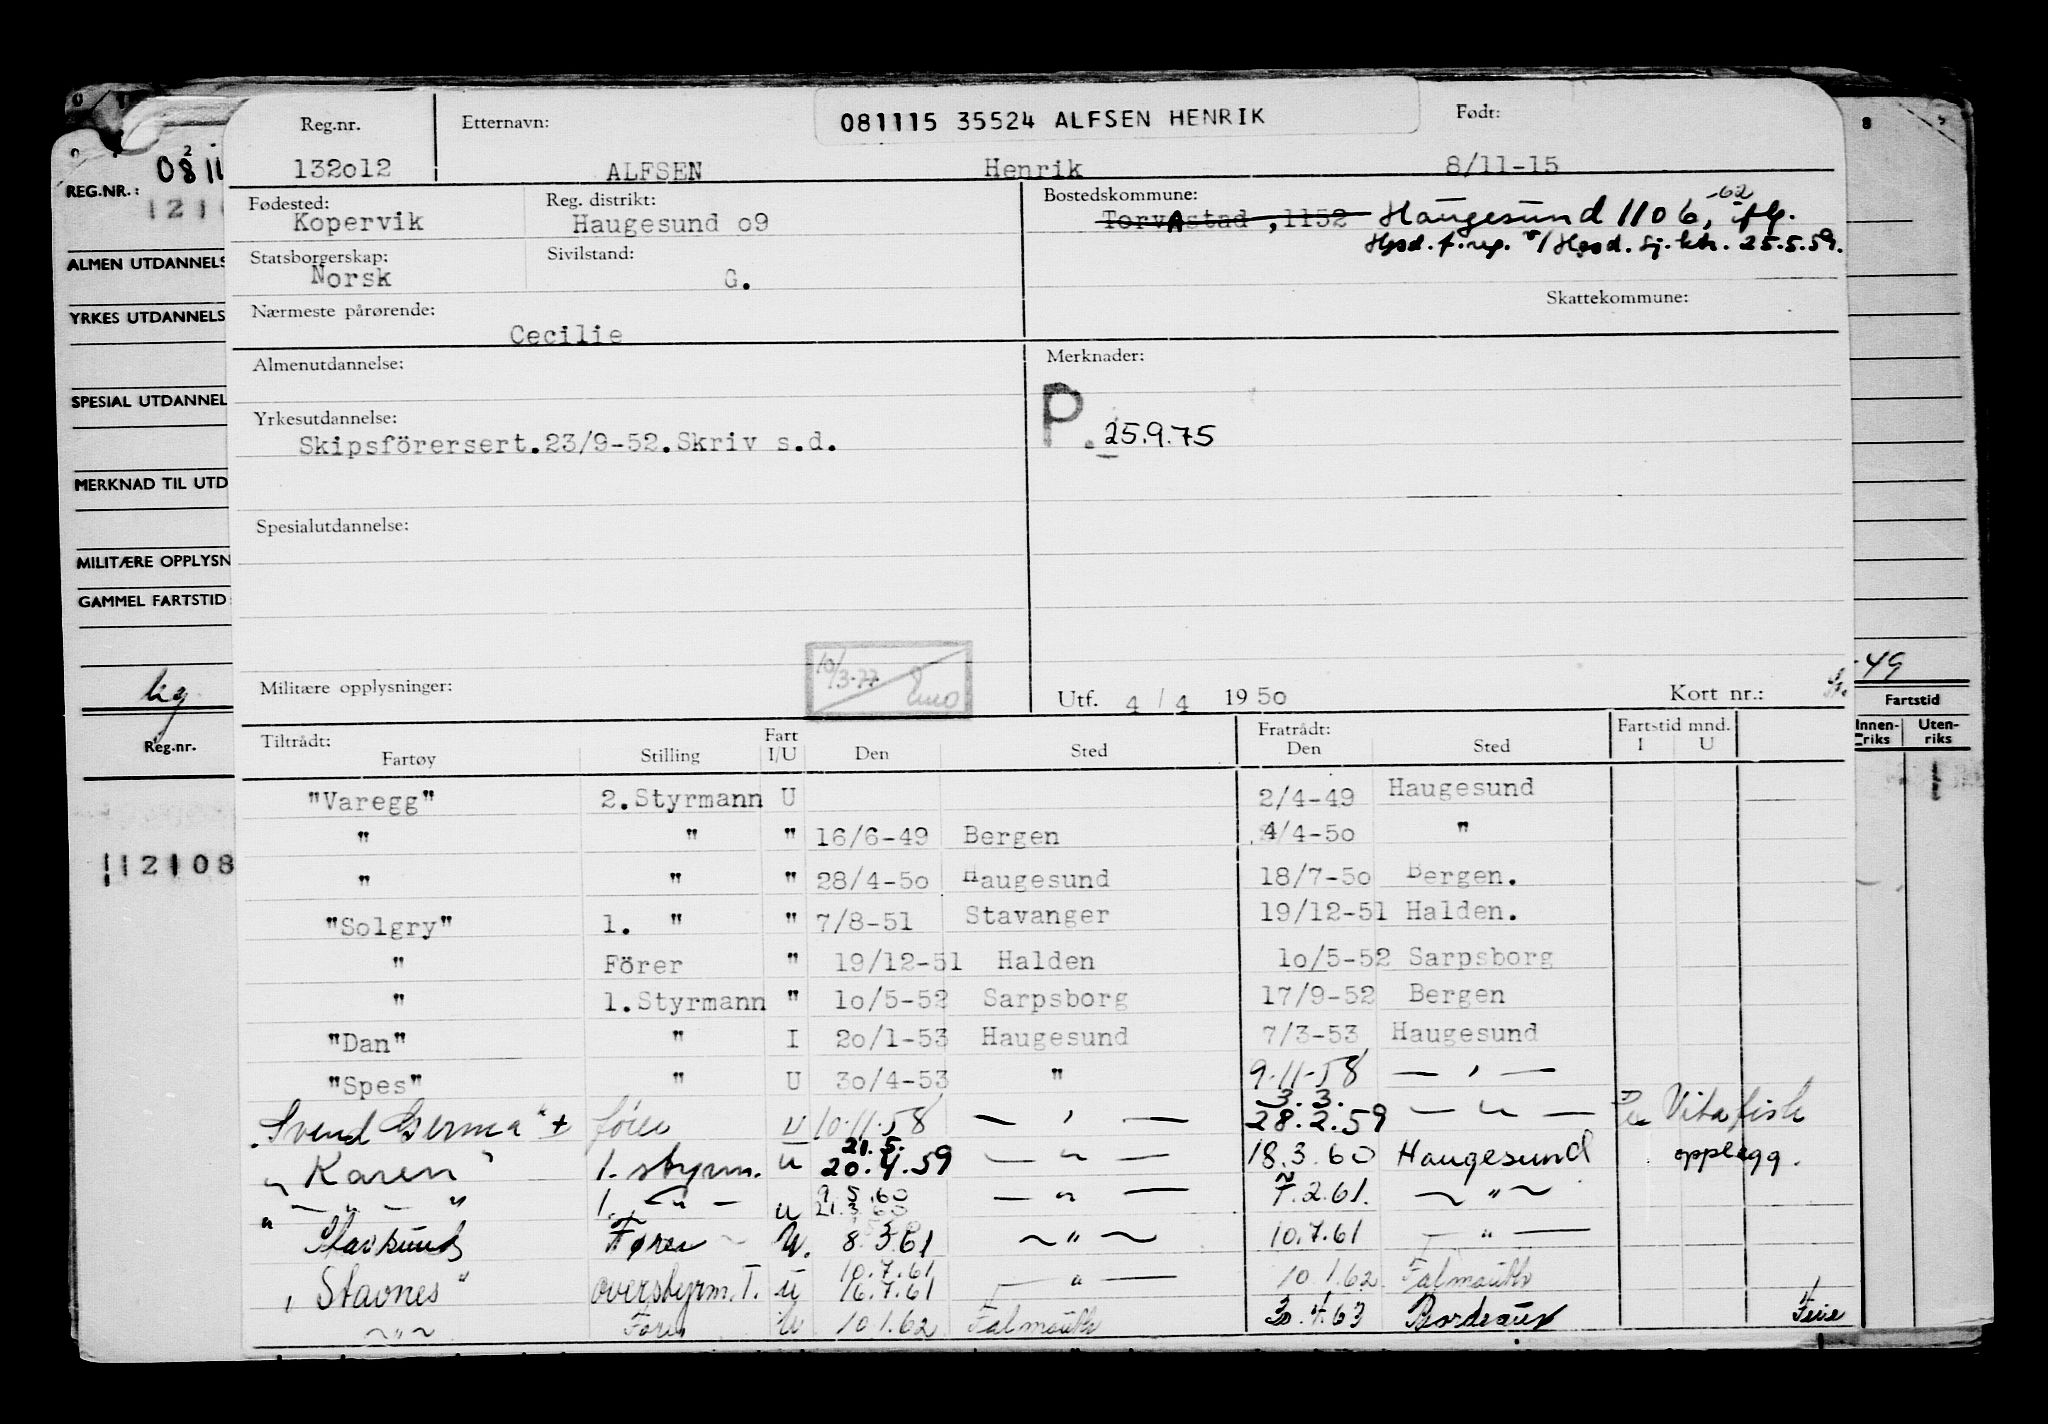 081115 35524 ALFSEN HENRIK
Reg.nr. Etternavn: Født:
132o12 ALFSEN Henrik 8/11-15
Fødested: Kopervik Reg. distrikt: Haugesund o9
Bostedskommune: TorvAstad ,1152 Haugesund 1106, iflg.
-62
Hgsd. f.reg. v/ Hgsd. sj. ktr. 25.5.59.
Statsborgerskap: Norsk Sivilstand: G.
Skattekommune:
Nærmeste pårørende: Cecilie
Almenutdannelse: Merknader:
P. 25.9.75
Yrkesutdannelse:
Skipsförersert.23/9-52.Skriv s.d.
Spesialutdannelse:
10/3-77
Militære opplysninger: Utf. 4 / 4 1950 Kort nr.:
Tiltrådt: Fratrådt: Fartstid mnd.
Fartøy Stilling Fart I/U Den Sted Den Sted I U
"Varegg" 2.Styrmann U 2/4-49 Haugesund
" " " 16/6-49 Bergen 4/4-5o "
" " " 28/4-5o Haugesund 18/7-5o Bergen.
"Solgry" 1. " " 7/8-51 Stavanger 19/12-51 Halden.
" Förer " 19/12-51 Halden 1o/5-52 Sarpsborg
" 1.Styrmann " 1o/5-52 Sarpsborg 17/9-52 Bergen
"Dan" " I 2o/1-53 Haugesund 7/3-53 Haugesund
"Spes" " U 3o/4-53 " 9.11.58 — " —
"Svend Germa" + fører U 10.11.58 — " — 3.3. 28.2.59 — " — Vitafisk
"Karen" 1. styrm. u 21.5. 20.4.59 — " — 18.3.60 Haugesund opplagg.
" — " — " 1. — " — u 9.5.60 21.3.60 — " — 7.2.61. — " —
" Fører U. 8.3.61 — " — 10.7.61 — " —
"Stavnes" overstyrm. I. u 10.7.61 16.7.61 — " — 10.1.62 Falmouth
— " — Fører U 10.1.62 Falmouth 30.4.63 Bordeaux Ferie
08 11
REG.NR.:
121
ALMEN UTDANNELS
YRKES UTDANNELS
SPESIAL UTDANNEL
MERKNAD TIL UTD
MILITÆRE OPPLYSN
GAMMEL FARTSTID
Reg.nr.
12108
8
-49
Fartstid
Innen-riks Uten-riks